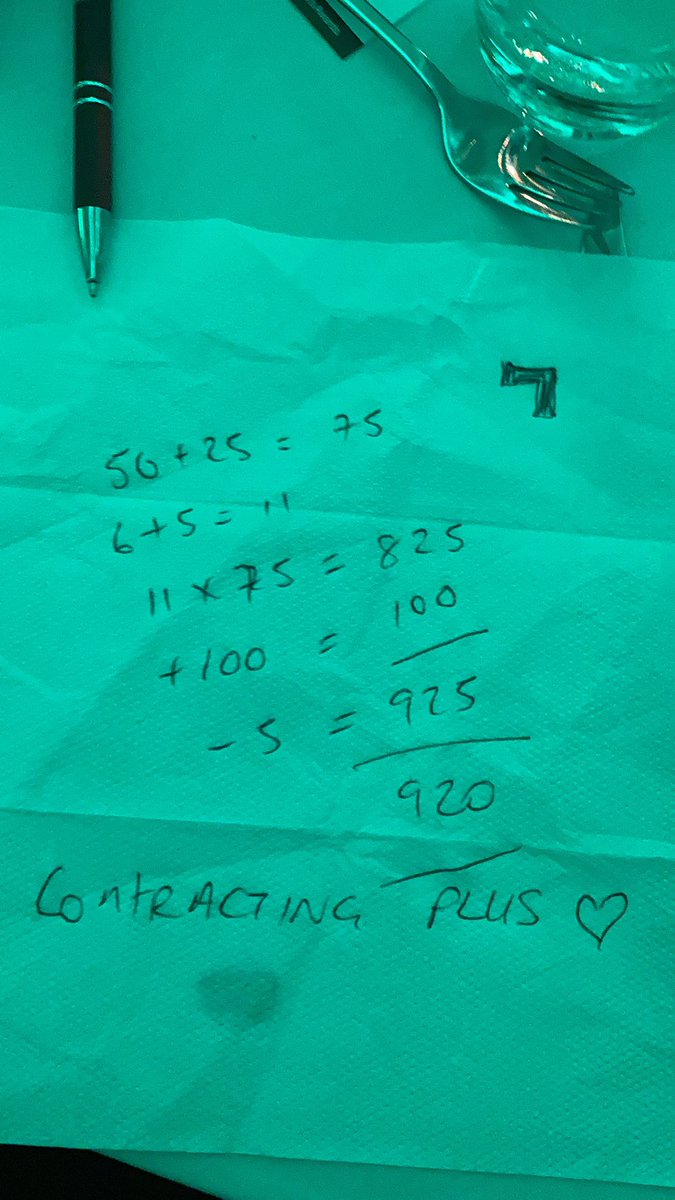 7
50+25 = 75
6+5 = 11
11 x 75 = 825
+100 = 100
-5 = 925
920
CONTRACTING PLUS ♡